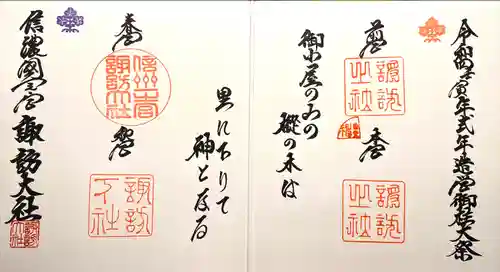 令和壬寅年式年造営御柱大祭
前宮
諏訪之社
本宮
諏訪之社
御小屋の山の
樅の木は
里に下りて
神となる
春宮
信州一宮諏訪大社
秋宮
諏訪大社
信濃國一之宮 諏訪大社